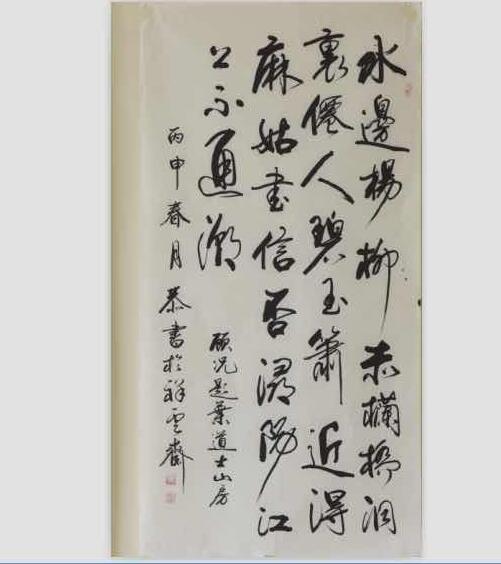 水邊楊柳赤欄橋洞
裏僊人碧玉簫近得
麻姑書信否潯陽江
上不通潮
顧况題葉道士山房
丙申春月恭書於祥雲齋